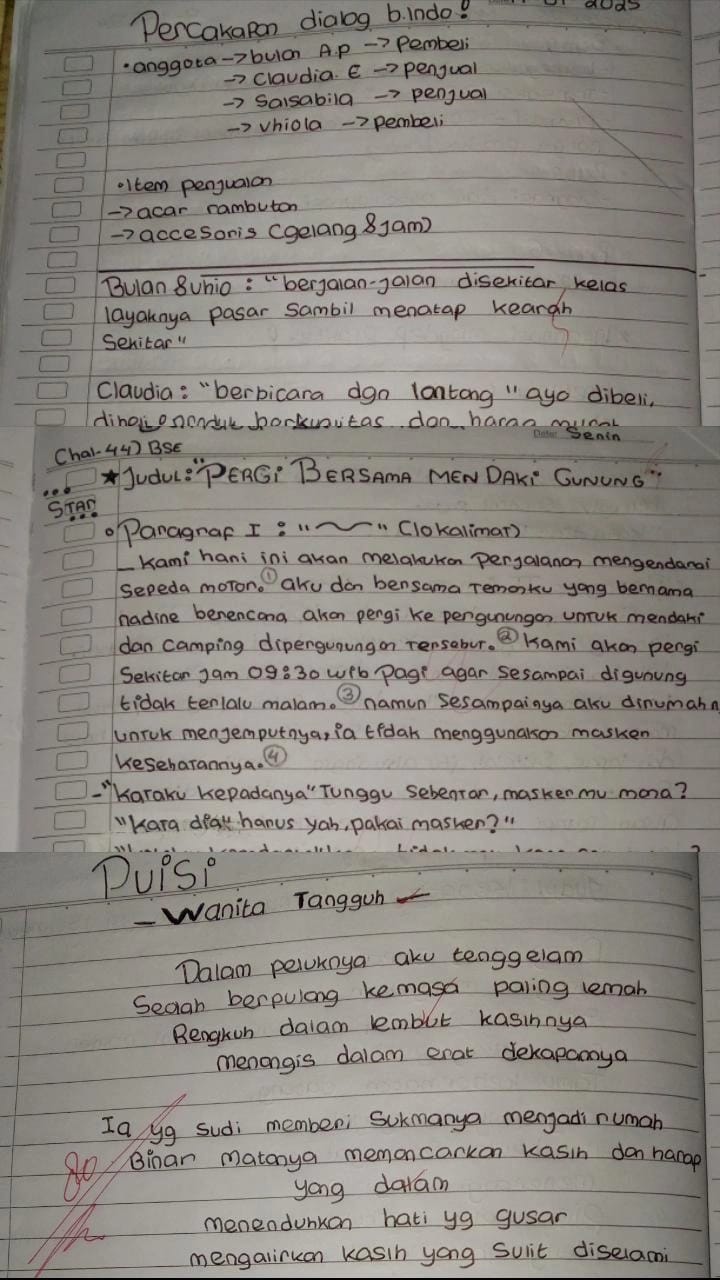 Percakapan dialog b.Indo!
2025
•anggota → bulan A.P → Pembeli
→ Claudia. E → penjual
→ Salsabila → penjual
→ vhiola → pembeli
•Item penjualan
→ acar rambutan
→ accesoris (gelang & jam)
Bulan & vhio : "berjalan-jalan disekitar kelas
layaknya pasar sambil menatap kearah
sekitar"
Claudia : "berbicara dgn lantang" ayo dibeli,
dan harga murah
Chal-44) BSE
Date: Senin
★Judul: "PERGi BERSAMA MENDAKi GUNUNG"
STAR
• Paragraf I : "~" (10kalimat)
_ Kami hari ini akan melakukan perjalanan mengendarai
sepeda motor.① aku dan bersama temanku yang bernama
nadine berencana akan pergi ke pergunungan untuk mendaki
dan camping dipergunungan tersebut.② Kami akan pergi
Sekitar jam 09:30 wib Pagi agar sesampai digunung
tidak terlalu malam.③ namun sesampainya aku dirumahn
untuk menjemputnya, ia tidak menggunakan masker
kesehatannya.④
-"Kataku kepadanya" Tunggu Sebentar, masker mu mana?
"Kata dia" harus yah, pakai masker?"
PUiSi
- Wanita Tangguh
Dalam peluknya aku tenggelam
Seolah berpulang kemasa paling lemah
Rengkuh dalam lembut kasihnya
menangis dalam erat dekapannya
Ia yg sudi memberi sukmanya menjadi rumah
Binar matanya memancarkan kasih dan harap
yang dalam
menenduhkan hati yg gusar
mengalirkan kasih yang sulit diselami
80